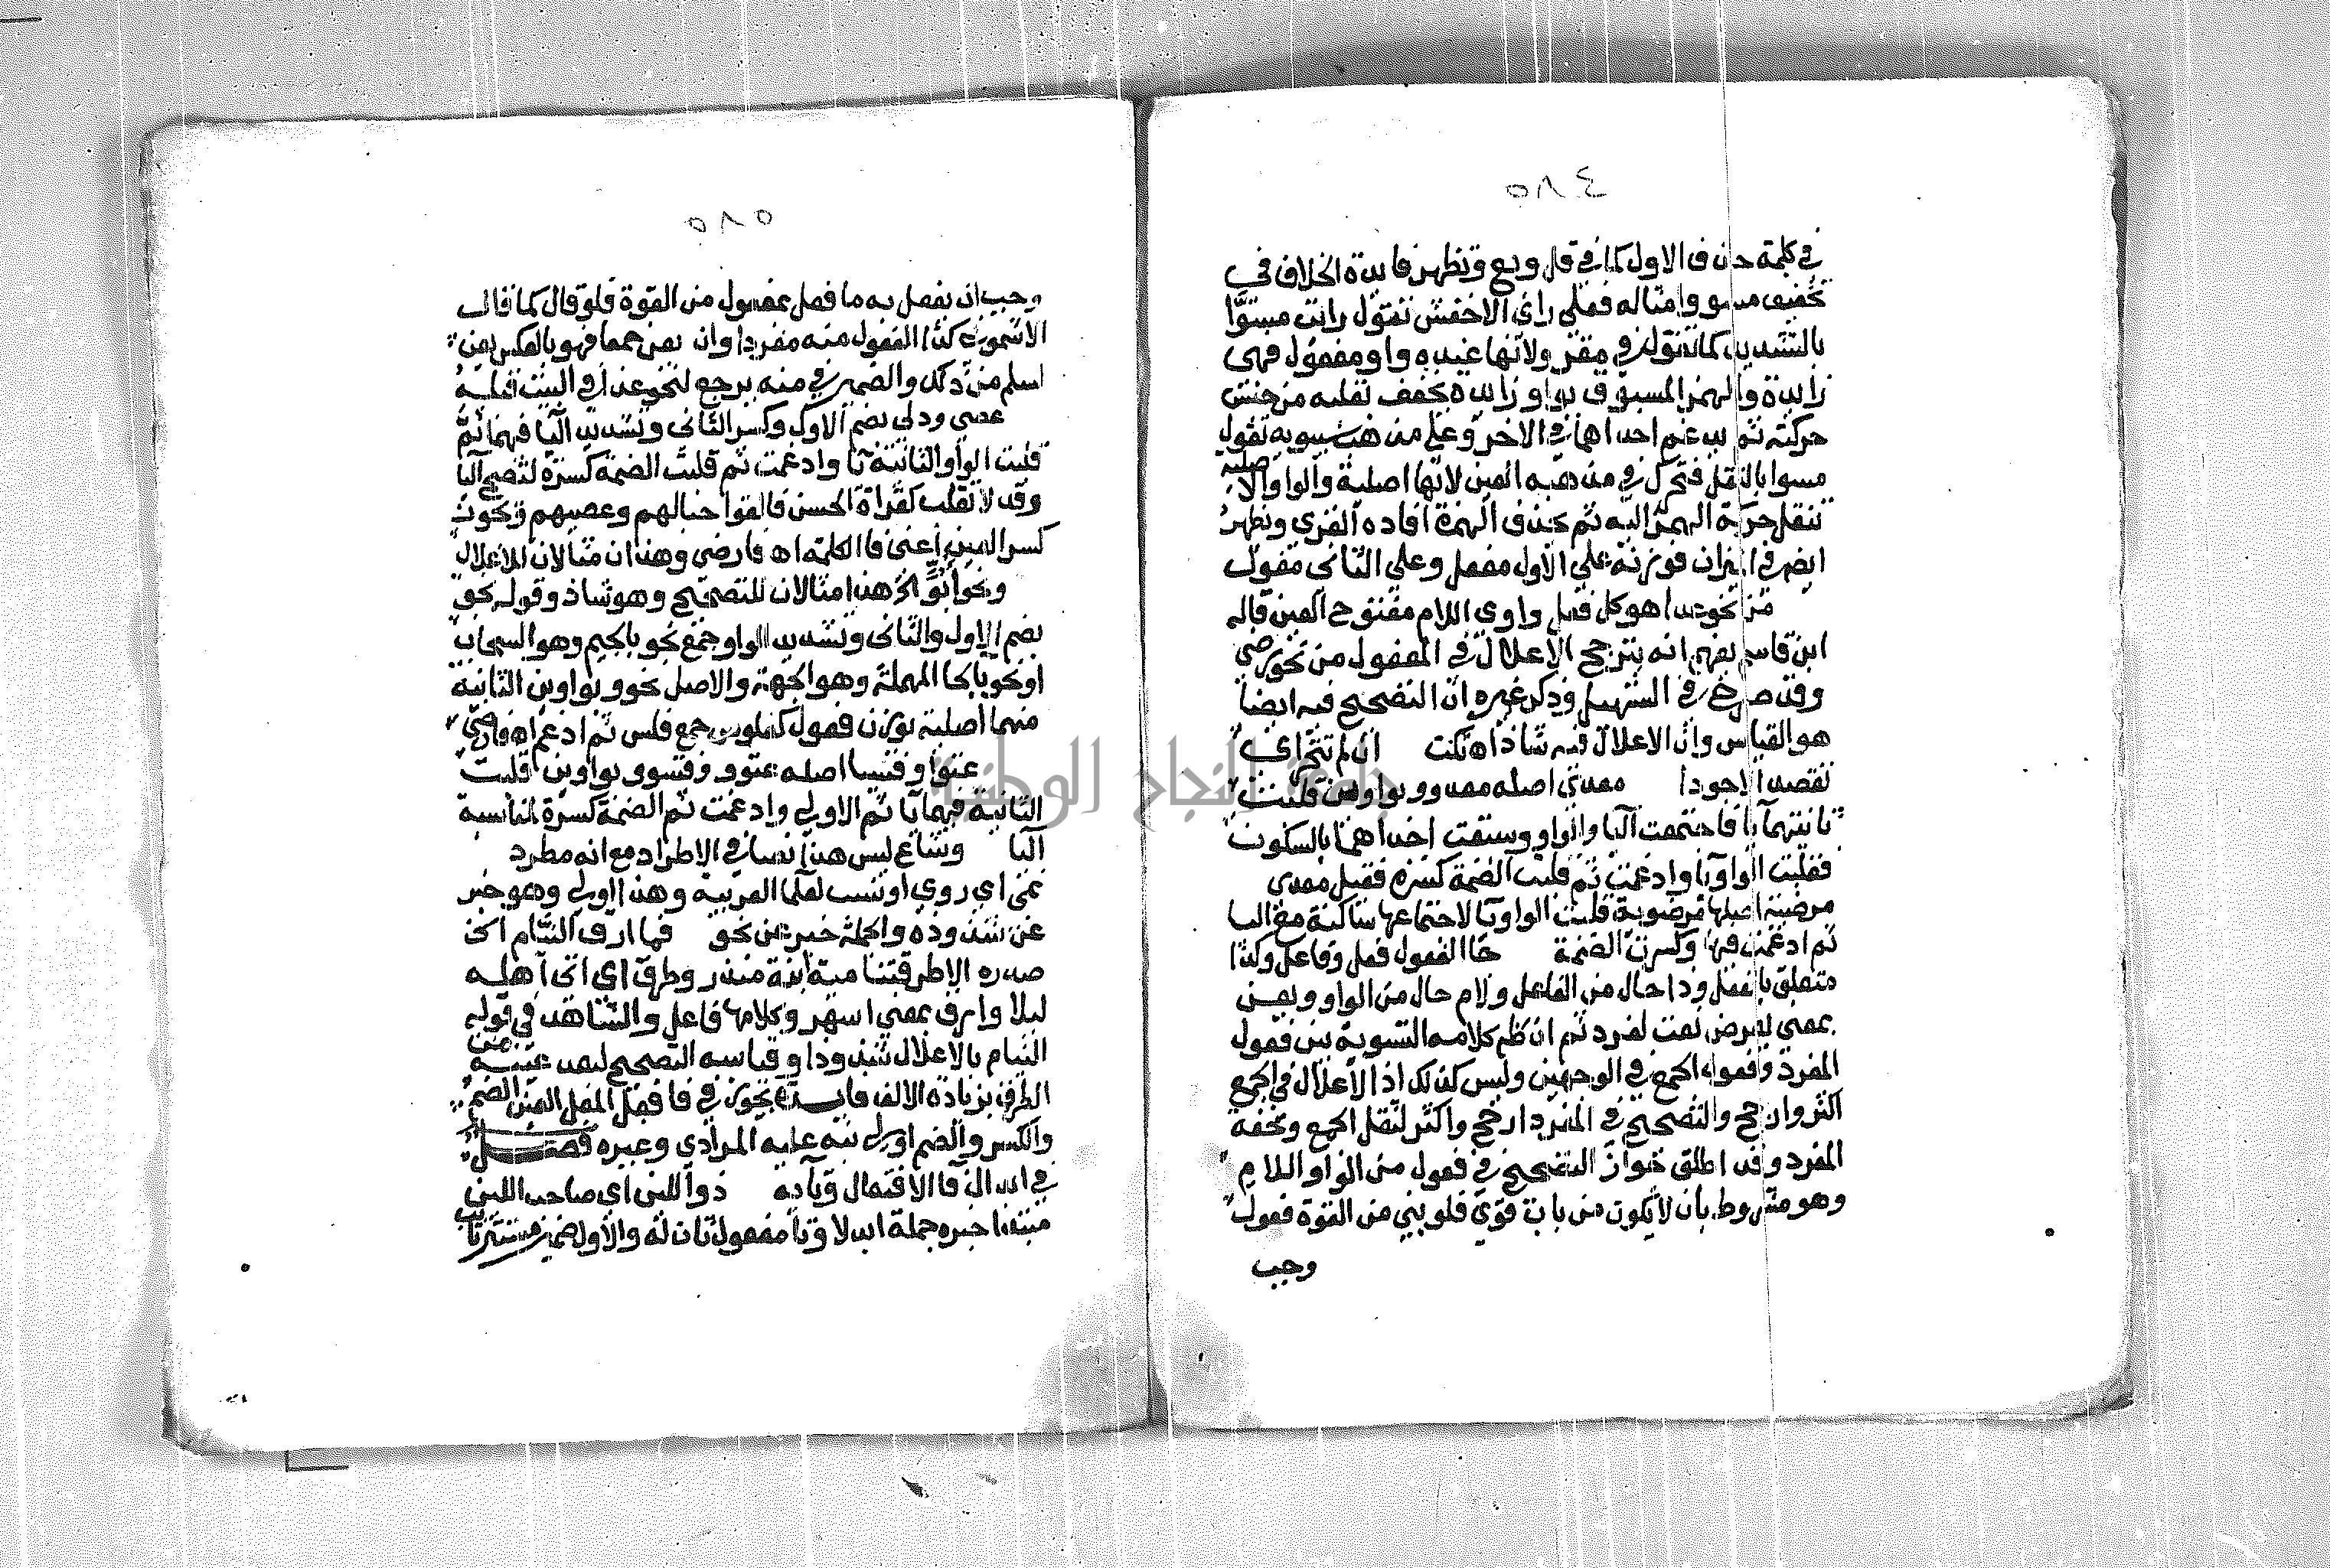 ٥٨٤
في كلمة حذف الاول كما في قل وبع وتظهر فايدة الخلاف في
تخفيف مسو وامثاله فعلى راى الاخفش تقول رايت مسوّا
بالتشديد كما تقول في مقرّ ولانها عنده واو مفعول فهى
زايدة والهمز المسبوق بواو زايده يخفف تقلبه من جنس
حركته ثم يدغم احداهما في الاخر وعلى مذهب سيبويه تقول
مسوا بالنقل فتحرك في مذهبه العين لانها اصلية والواو الاصلية
تنقل حركة الهمز اليه ثم تحذف الهمزة افاده الغزى وتظهر
ايضا في الميزان فوزنه على الاول مفعل وعلى الثانى مفول
من نحو عدا هو كل فعل واوى اللام مفتوح العين قاله
ابن قاسم يفهم انه يترجح الاعلال في المفعول من نحو رضى
وقد صرح في التسهيل وذكر غيره ان التصحيح فيه ايضا
هو القياس وان الاعلال فيه شاذ اه نكت ان لم تتحر اى
تقصد الاجودا معدى اصله معدوو بواوين قلبت
ثانيتهما يا فاجتمعت اليا والواو وسبقت احداهما بالسكون
فقلبت الواو يا وادغمت ثم قلبت الضمة كسرة فقيل معدى
مرضية اصلها مرضوية قلبت الواو يا لاجتماعها ساكنة مع اليا
ثم ادغمت فيها وكسرت الضمة جا الفعول فعل وفاعل وكذا
متعلق بالفعل وذا حال من الفاعل ولام حال من الواو ويعن
بمعنى يعرض نعت لفرد ثم ان ظم كلامه التسوية بين فعول
المفرد وفعول الجمع في الوجهين وليس كذلك اذ الاعلال في الجمع
اكثر وارجح والتصحيح في المفرد ارجح واكثر لثقل الجمع وخفة
المفرد وقد اطلق جواز التصحيح في فعول من الواو اللام
وهو مشروط بان لا يكون من باب قوى فلو بنى من القوة فعول
وجب
٥٨٥
وجب ان يفعل به ما فعل بمفعول من القوة فلو قال كما قال
الاشمونى كذا الفعول منه مفردا وان يعن جمعا فهو بالعكس يعن
اسلم من ذلك والضمير في منه يرجع لنحو عدا في البيت قبله
عصى ودلى بضم الاول وكسر الثانى وتشديد اليا فيهما ثم
قلبت الواو الثانية يا وادغمت ثم قلبت الضمة كسرة لتصح اليا
وقد لا تقلب كقراة الحسن فالقوا حبالهم وعصيهم وتكون
كسر العين اعنى فا الكلمة اه فارضى وهذان مثالان للاعلال
ونحو ابوّ الخ هذا مثالان للتصحيح وهو شاذ وقوله نحوّ
بضم الاول والثانى وتشديد الواو جمع نجو بالجيم وهو السحاب
او نحو بالحا المهملة وهو الجهة والاصل نحوو بواوين الثانية
منهما اصلية بوزن فعول كفلوس جمع فلس ثم ادغم اه فارضى
عتوا وقسيا اصله عتوو وقسوو بواوين قلبت
الثانية فيهما يا ثم الاولى وادغمت ثم الضمة كسرة لمناسبة
اليا وشاع ليس هذا نصا في الاطراد مع انه مطرد
نمى اى روى او نسب لعلما العربية وهذا اولى وهو خبر
عن شذوذه والجملة خبر عن نحو فما ارق النيام الخ
صدره الا طرقتنا مية ابنة منذر وطرق اى اتى اهله
ليلا وارق بمعنى اسهر وكلامها فاعل والشاهد في قوله
النيام بالاعلال شذوذا وقياسه التصحيح لبعد عينه من
الطرف بزيادة الالف فايدة يجوز في فا فعل المعل العين الضم
والكسر والضم اولى نبه عليه المرادى وغيره فصل
في ابدال فا الافتعال وتايه ذو اللين اى صاحب اللين
مبتدا خبره جملة ابدلا وتا مفعول ثان له والاول ضمير مستتر نايب